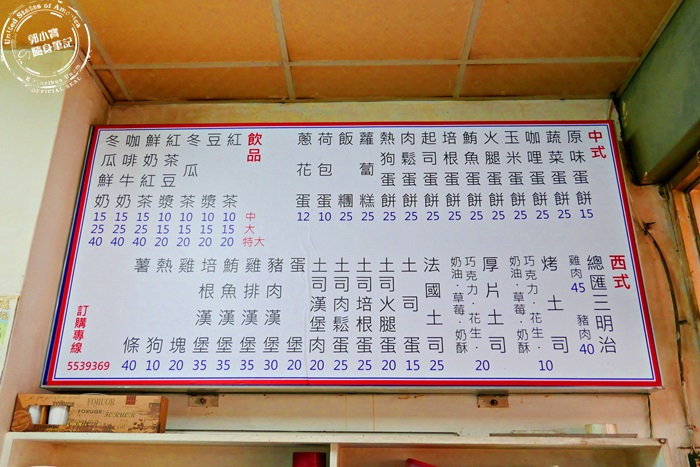 中式
原味蛋餅 15
蔬菜蛋餅 25
咖哩蛋餅 25
玉米蛋餅 25
火腿蛋餅 25
鮪魚蛋餅 25
培根蛋餅 25
起司蛋餅 25
肉鬆蛋餅 25
熱狗蛋餅 25
蘿蔔糕 25
飯糰 25
荷包蛋 10
蔥花蛋 12
飲品
中
大
特大
紅茶 10 15 20
豆漿 10 15 20
冬瓜茶 10 15 20
紅茶豆漿 10 15 20
鮮奶紅茶 15 25 40
咖啡牛奶 15 25 40
冬瓜鮮奶 15 25 40
西式
總匯三明治
雞肉 45
豬肉 40
烤土司
巧克力·花生·
奶油·草莓·奶酥
10
厚片土司
巧克力·花生·
奶油·草莓·奶酥
20
法國土司 25
土司蛋 15
土司火腿蛋 20
土司培根蛋 25
土司肉鬆蛋 25
土司漢堡肉 20
蛋堡 20
豬肉漢堡 30
雞排漢堡 35
鮪魚漢堡 35
培根漢堡 35
雞塊 20
熱狗 10
薯條 40
訂購專線
5539369
United States of America
郭小寶
隨身筆記
OFFICIAL SEAL
FORUOR